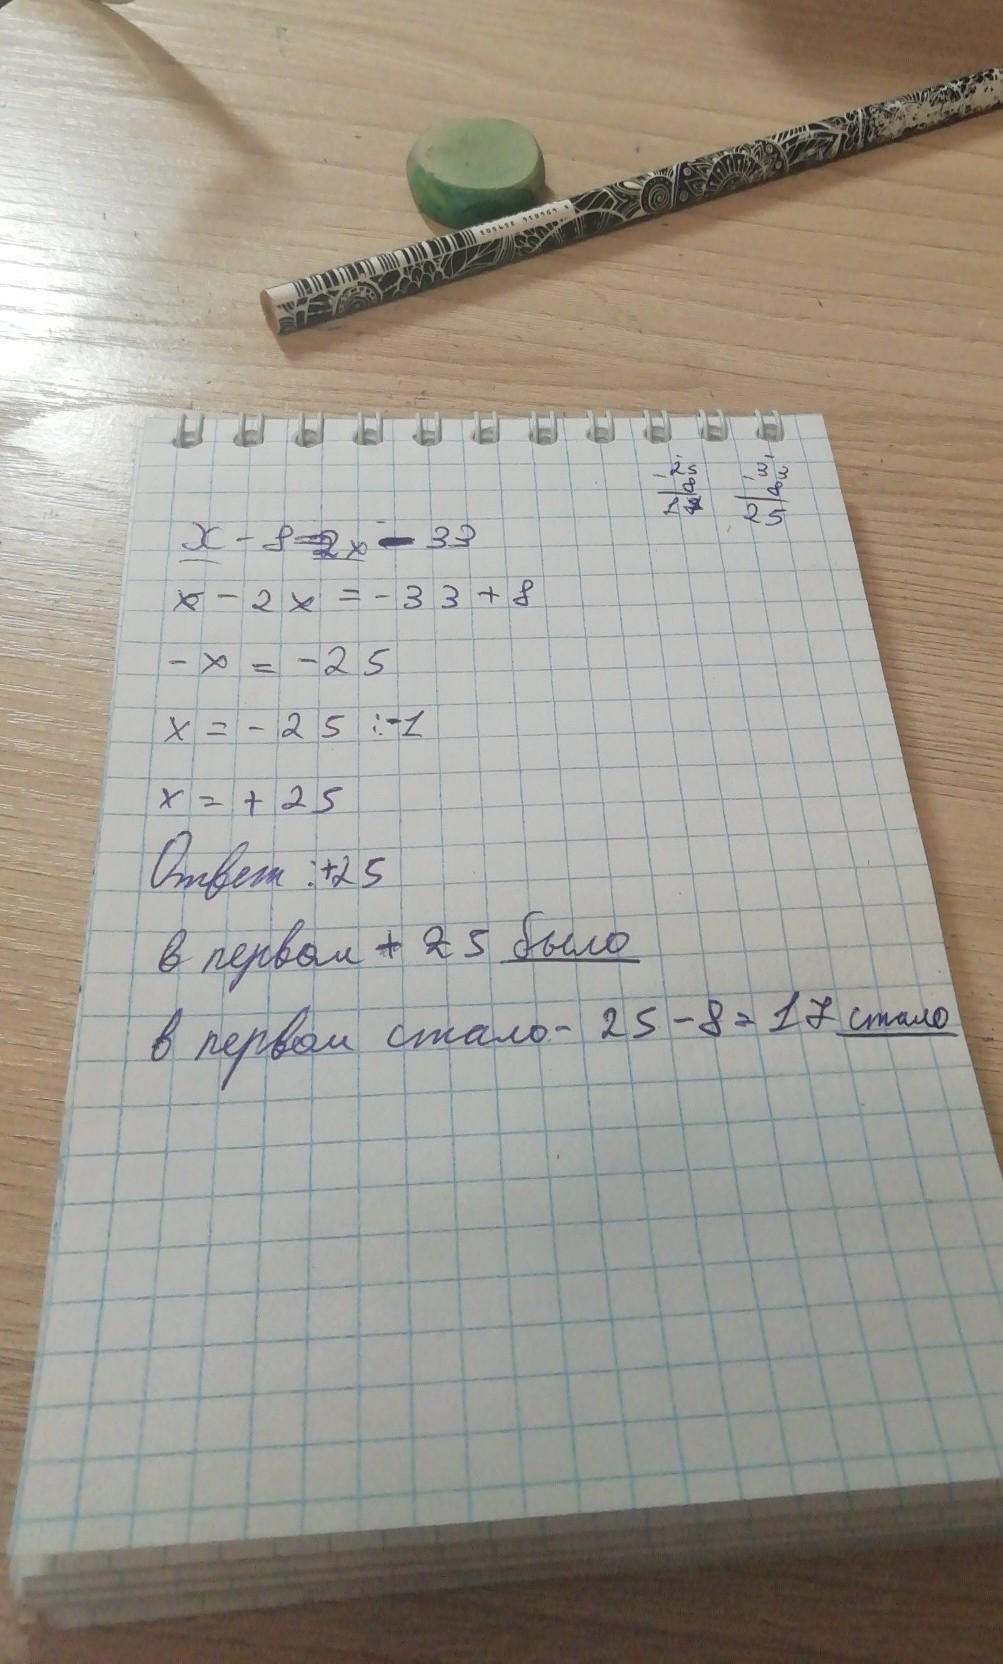 x - 8 = 2x - 33
x - 2x = - 33 + 8
- x = - 25
x = - 25 : -1
x = + 25
Ответ : +25
в первом + 25 было
в первом стало - 25 - 8 = 17 стало